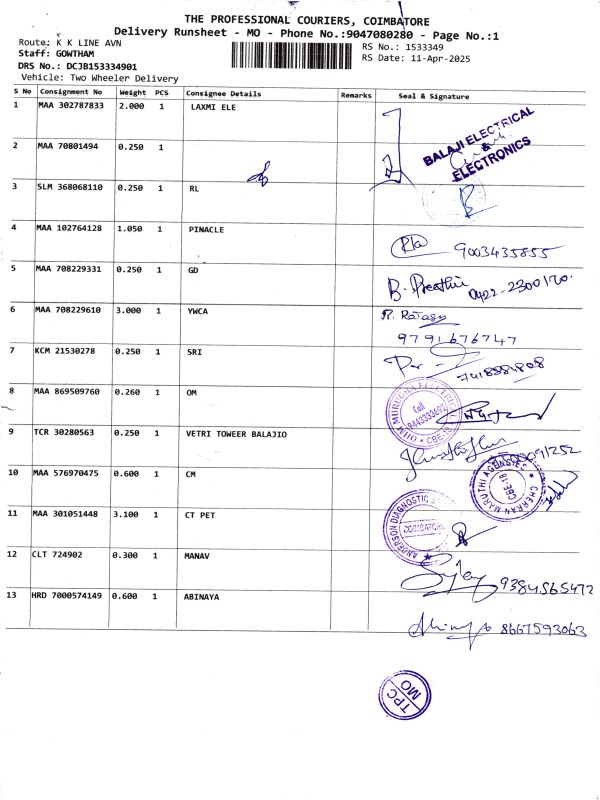 THE PROFESSIONAL COURIERS, COIMBATORE
Delivery Runsheet - MO - Phone No.:9047080280 - Page No.:1
Route: K K LINE AVN
RS No.: 1533349
Staff: GOWTHAM
RS Date: 11-Apr-2025
DRS No.: DCJB153334901
Vehicle: Two Wheeler Delivery
S No Consignment No Weight PCS Consignee Details Remarks Seal & Signature
1 MAA 302787833 2.000 1 LAXMI ELE
BALAJI ELECTRICAL
&
ELECTRONICS
2 MAA 70801494 0.250 1
3 SLM 368068110 0.250 1 RL
4 MAA 102764128 1.050 1 PINACLE
9003435855
5 MAA 708229331 0.250 1 GD
B. Preethi 0422-2300170.
6 MAA 708229610 3.000 1 YWCA
9791676747
7 KCM 21530278 0.250 1 SRI
8 MAA 869509760 0.260 1 OM
OHM MURUGHA ELECTRIC
Call
CBE-18
9 TCR 30280563 0.250 1 VETRI TOWEER BALAJIO
10 MAA 576970475 0.600 1 CM
CHERRAN MARUTHI AGENCIES
CBE-18
11 MAA 301051448 3.100 1 CT PET
ANDERSON DIAGNOSTIC
COIMBATORE
12 CLT 724902 0.300 1 MANAV
9384565472
13 HRD 7000574149 0.600 1 ABINAYA
8667593063
TPC
MO